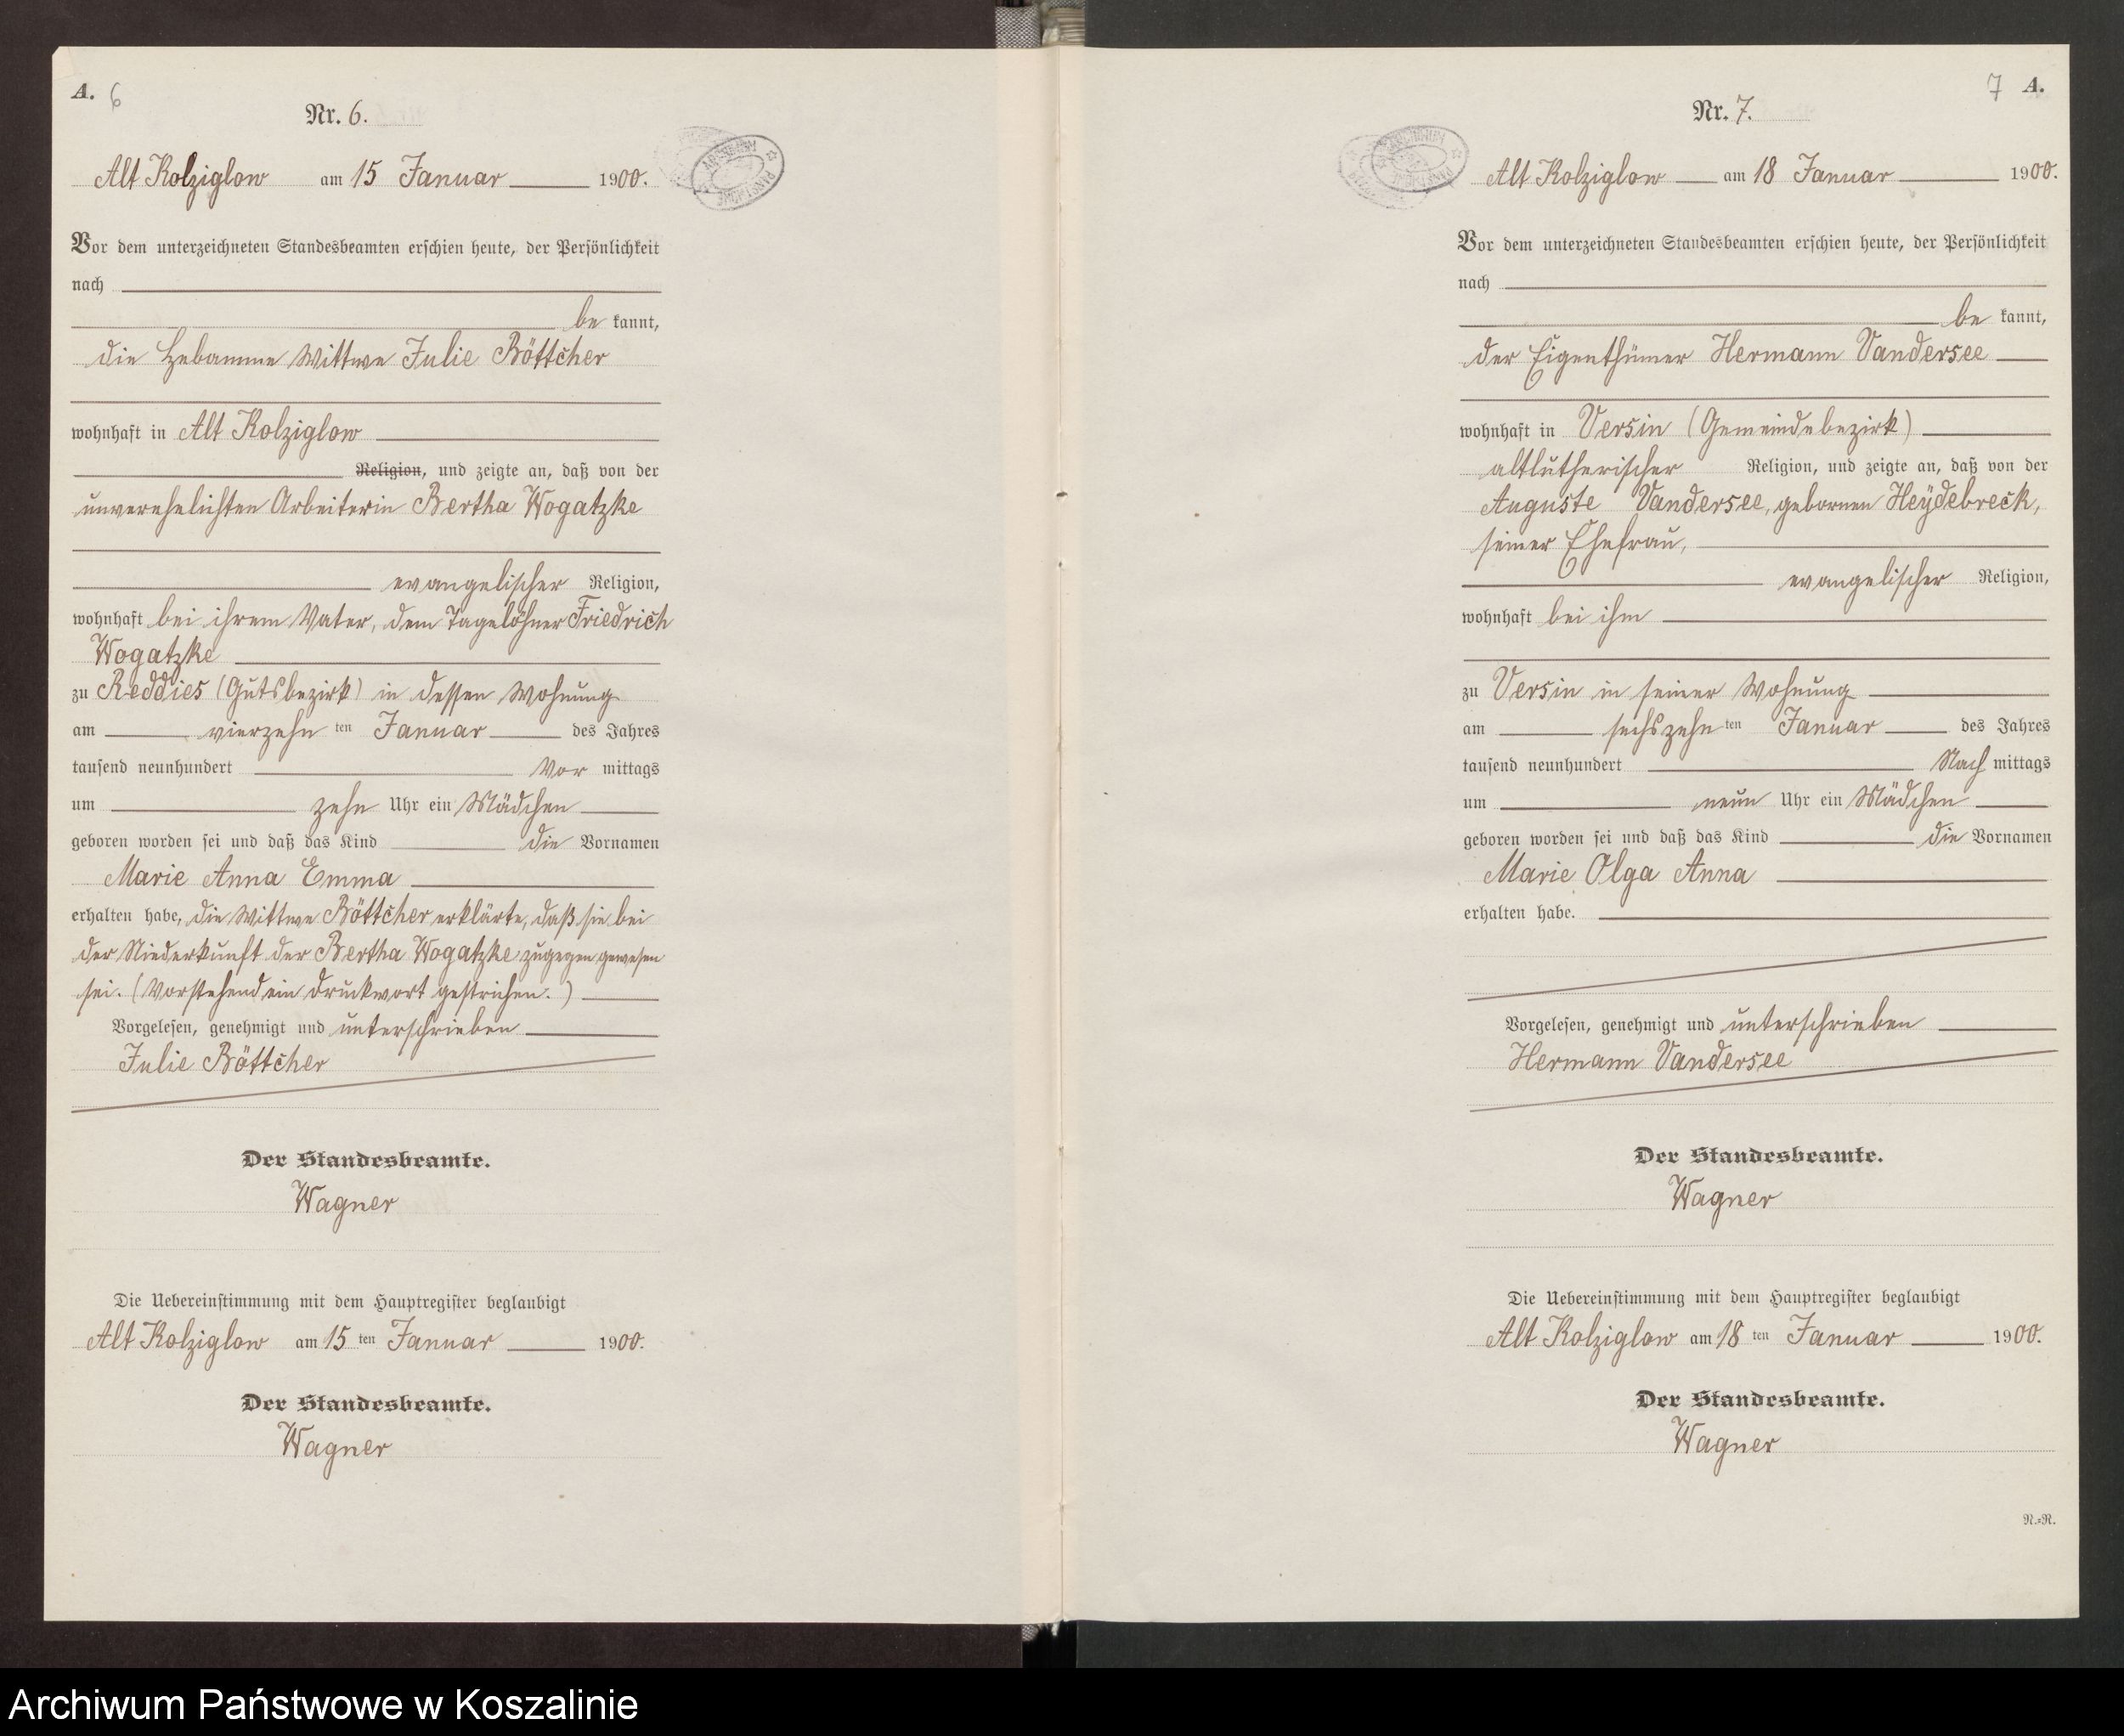 A. 6
Nr. 6.
Alt Kolziglow am 15 Januar 1900.
Vor dem unterzeichneten Standesbeamten erschien heute, der Persönlichkeit
nach
be kannt,
die Hebamme Wittwe Julie Böttcher
wohnhaft in Alt Kolziglow
Religion, und zeigte an, daß von der
unverehelichten Arbeiterin Bertha Wogatzke
evangelischer Religion,
wohnhaft bei ihrem Vater, dem Tagelöhner Friedrich
Wogatzke
zu Reddies (Gutsbezirk) in dessen Wohnung
am vierzehn ten Januar des Jahres
tausend neunhundert Vor mittags
um zehn Uhr ein Mädchen
geboren worden sei und daß das Kind die Vornamen
Marie Anna Emma
erhalten habe, die Wittwe Böttcher erklärte, daß sie bei
der Niederkunft der Bertha Wogatzke zugegen gewesen
sei. (Vorstehend ein Druckwort gestrichen.)
Vorgelesen, genehmigt und unterschrieben
Julie Böttcher
Der Standesbeamte.
Wagner
Die Uebereinstimmung mit dem Hauptregister beglaubigt
Alt Kolziglow am 15 ten Januar 1900.
Der Standesbeamte.
Wagner
7 A.
Nr. 7.
Alt Kolziglow am 18 Januar 1900.
Vor dem unterzeichneten Standesbeamten erschien heute, der Persönlichkeit
nach
be kannt,
der Eigenthümer Hermann Vandersee
wohnhaft in Versin (Gemeindebezirk)
altlutherischer Religion, und zeigte an, daß von der
Auguste Vandersee, gebornen Heydebreck,
seiner Ehefrau,
evangelischer Religion,
wohnhaft bei ihm
zu Versin in seiner Wohnung
am sechszehn ten Januar des Jahres
tausend neunhundert Nach mittags
um neun Uhr ein Mädchen
geboren worden sei und daß das Kind die Vornamen
Marie Olga Anna
erhalten habe.
Vorgelesen, genehmigt und unterschrieben
Hermann Vandersee
Der Standesbeamte.
Wagner
Die Uebereinstimmung mit dem Hauptregister beglaubigt
Alt Kolziglow am 18 ten Januar 1900.
Der Standesbeamte.
Wagner
N.=R.
Archiwum Państwowe w Koszalinie